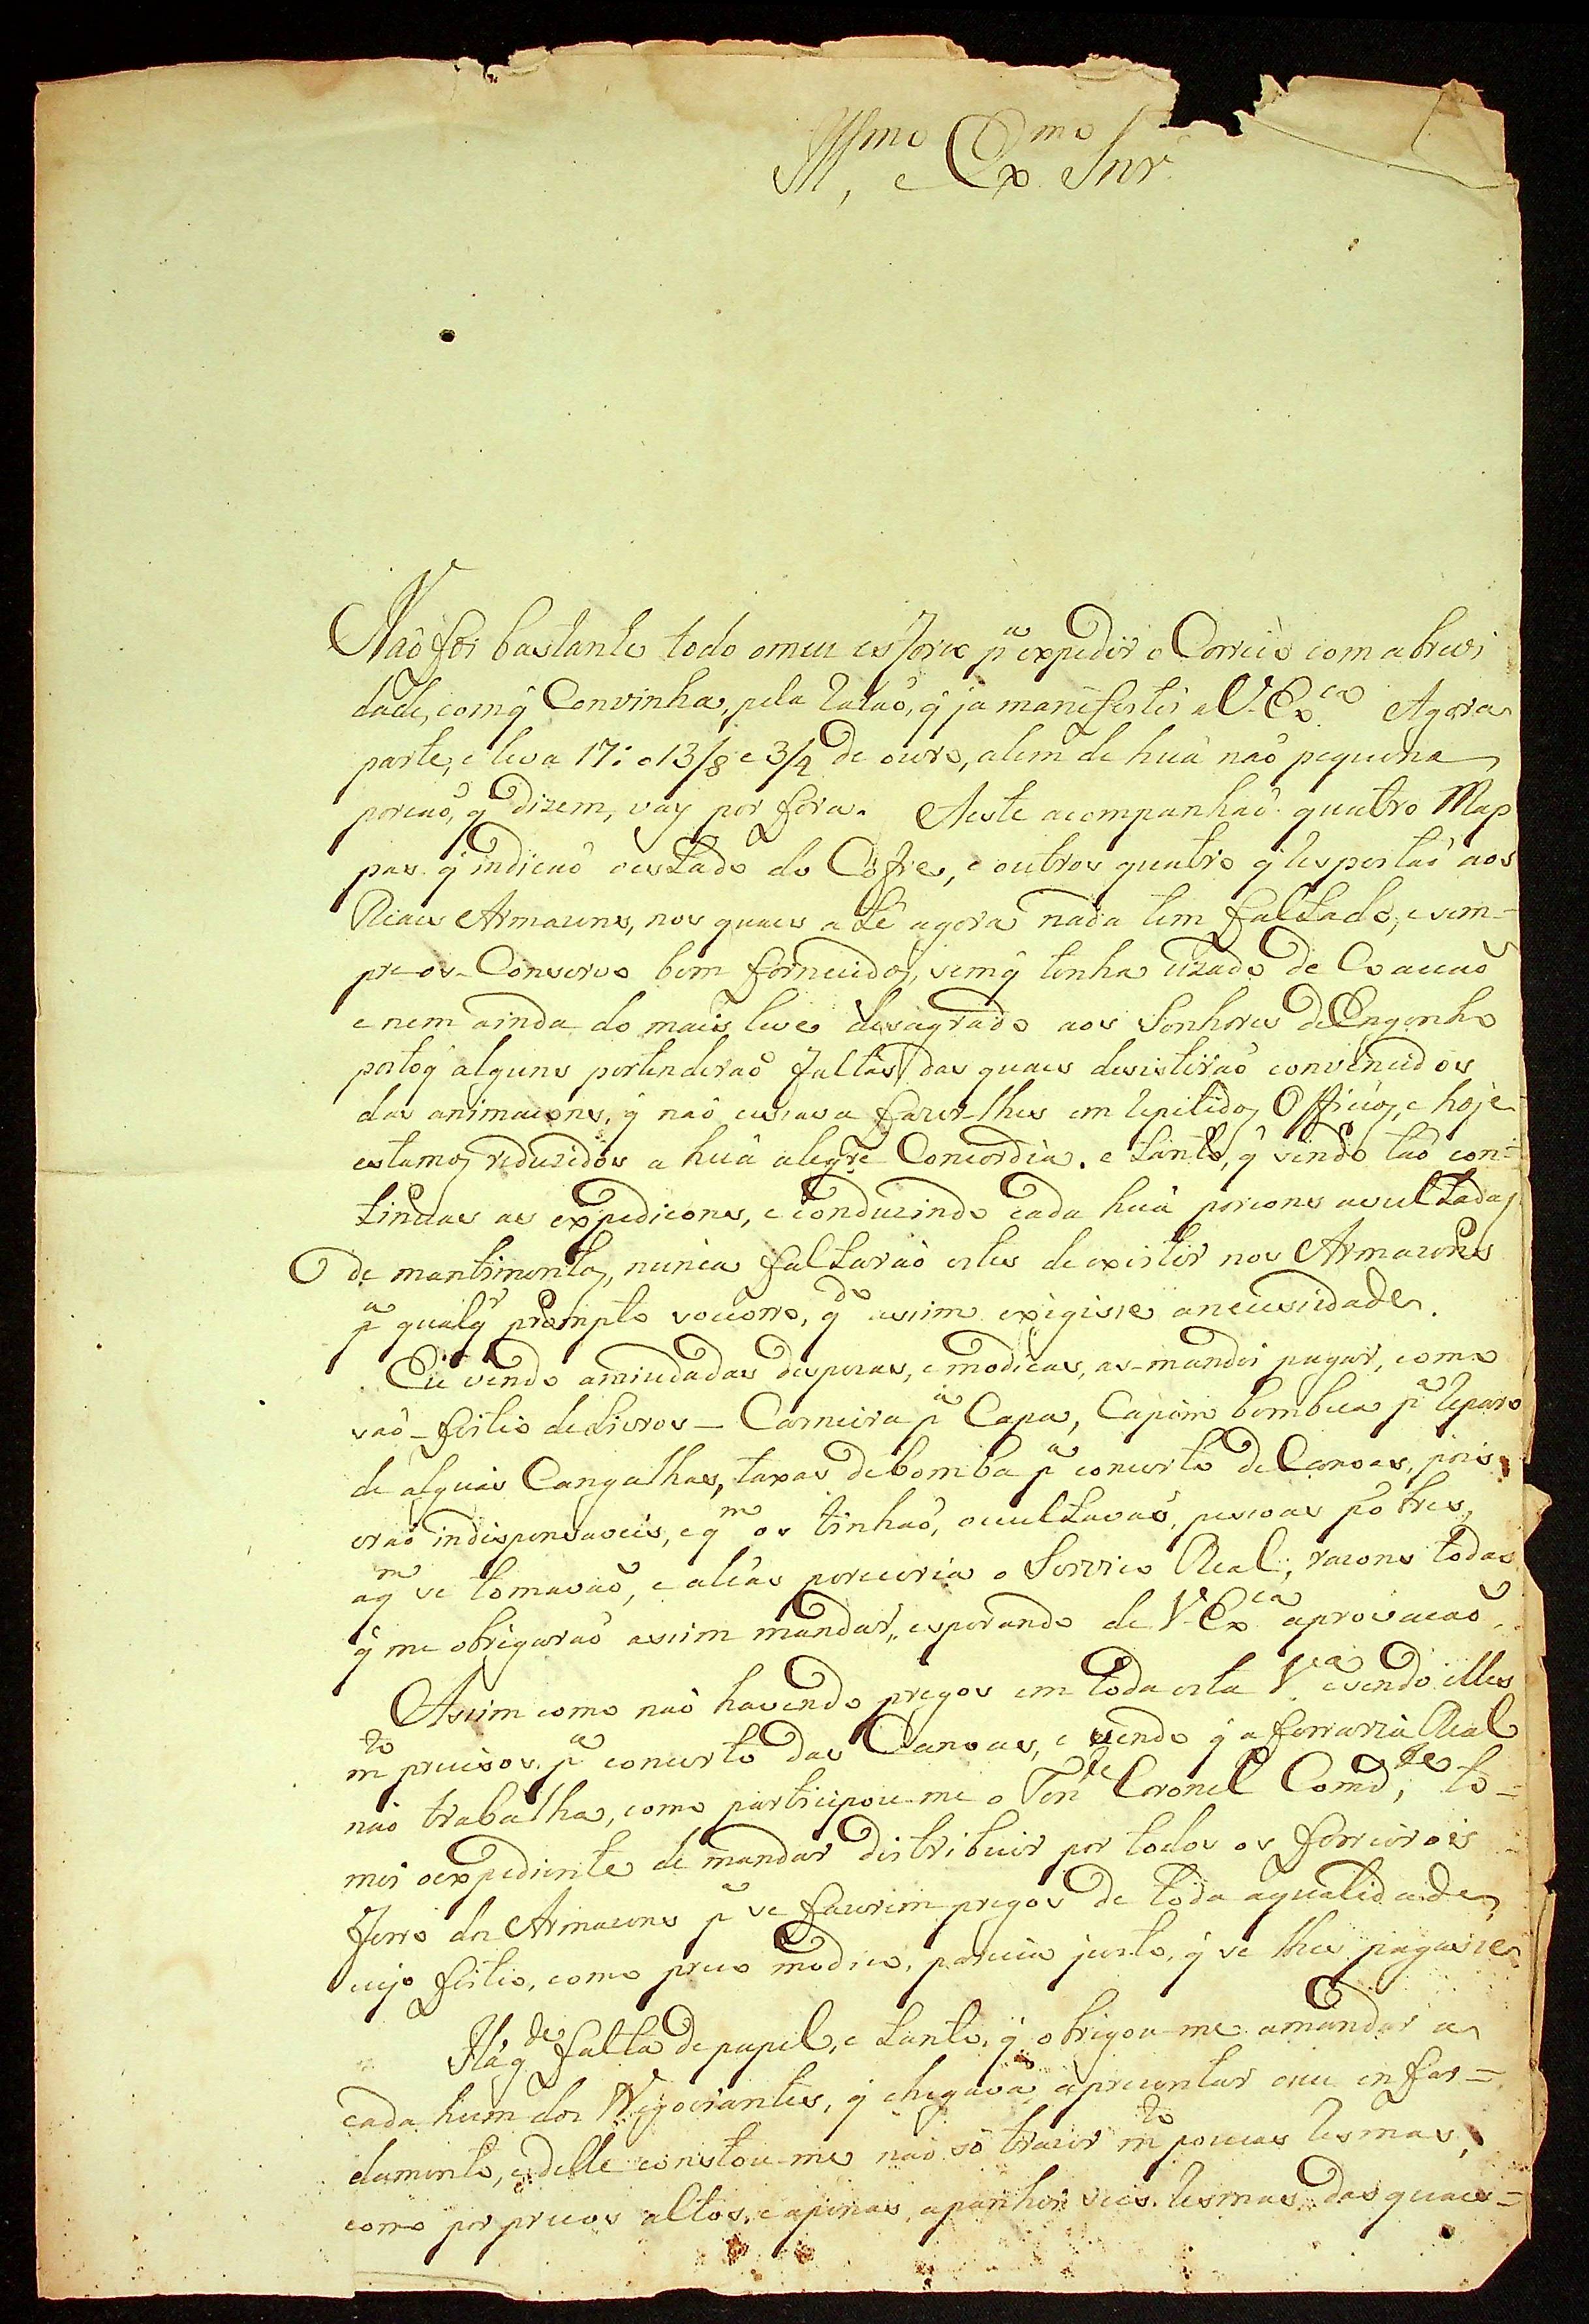 Ill.mo e Ex.mo Snr.
Naõ foi bastante todo omeu esforço p.a expedir o Correio com abrevi
dade, comq̃ Convinha, pela razaõ, q̃ ja manifestei a V. Ex.ca Agora
parte, e leva 17: 013/8 e 3/4 de ouro, alem de huã naõ pequena
porçaõ, q̃ dizem, vay por fora. Aeste acompanhaõ quatro Map
pas q̃ indicaõ oestado do Cofre, e outros quatro q̃ respeitaõ aos
Reaes Armazens, nos quaes a té agora nada tem faltado, e sem=
pre os-Conservo bem fornecidos, semq̃ tenha uzado de Coacçaõ
e nem ainda do mais leve desagrado aos Senhores de Engenho
postoq̃ alguns pertenderaõ faltar, das quaes desistiraõ convencidos
das animaçoens, q̃ naõ cessava fazer-lhes em repetidos Officios, e hoje
estamos reduzidos a huã alegre Concordia. e tanto, q̃ sendo taõ con=
tinuas as expediçoens, e conduzindo cada huã porçoens avultadas
de mantimentos, nunca faltaraõ estes de existir nos Armazens
p.a qualq.r prompto socorro, q.do assim exigisse anecessidade.
Eu vendo amiudadas despezas, e modicas, as-mandei pagar, como
saõ-feitio de Livros-Carneira p.a Capa, Capim bombuca p.a reparo
de alguãs Cangalhas, taxas de bomba p.a concerto de Canoas, pois
eraõ indispensaveis, e q.m os tinhaõ, occultavaõ, pessoas pobres,
aq.m se tomavaõ, e aliás pereceria o Serviço Real; razoens todas
q̃ me obrigaraõ assim mandar, esperando de V. Ex.ca aprovaçaõ.
Assim como naõ havendo pregos em toda esta V.ca e sendo elles
m.to precisos p.a concerto das Canoas, e vendo q̃ a ferraria Real
naõ trabalha, como participou-me o Ten.te Coronel Com.d.te, to=
mei oexpediente de mandar distribuir por todos os ferreiros
ferro dos Armazens p.a se fazerem pregos de toda aqualidade,
cujo feitio, como preço modico, parecia justo, q̃ se lhes pagasse
Há g.de falta de papel, e tanto, q̃ obrigou-me amandar a
cada hum dos Negociantes, q̃ chegava, aprezentar oseu enfar=
damento, e delle constou-me naõ só trazer m.to poucas resmas,
como por preços altos, e apenas, apanhei seis resmas, das quaes=